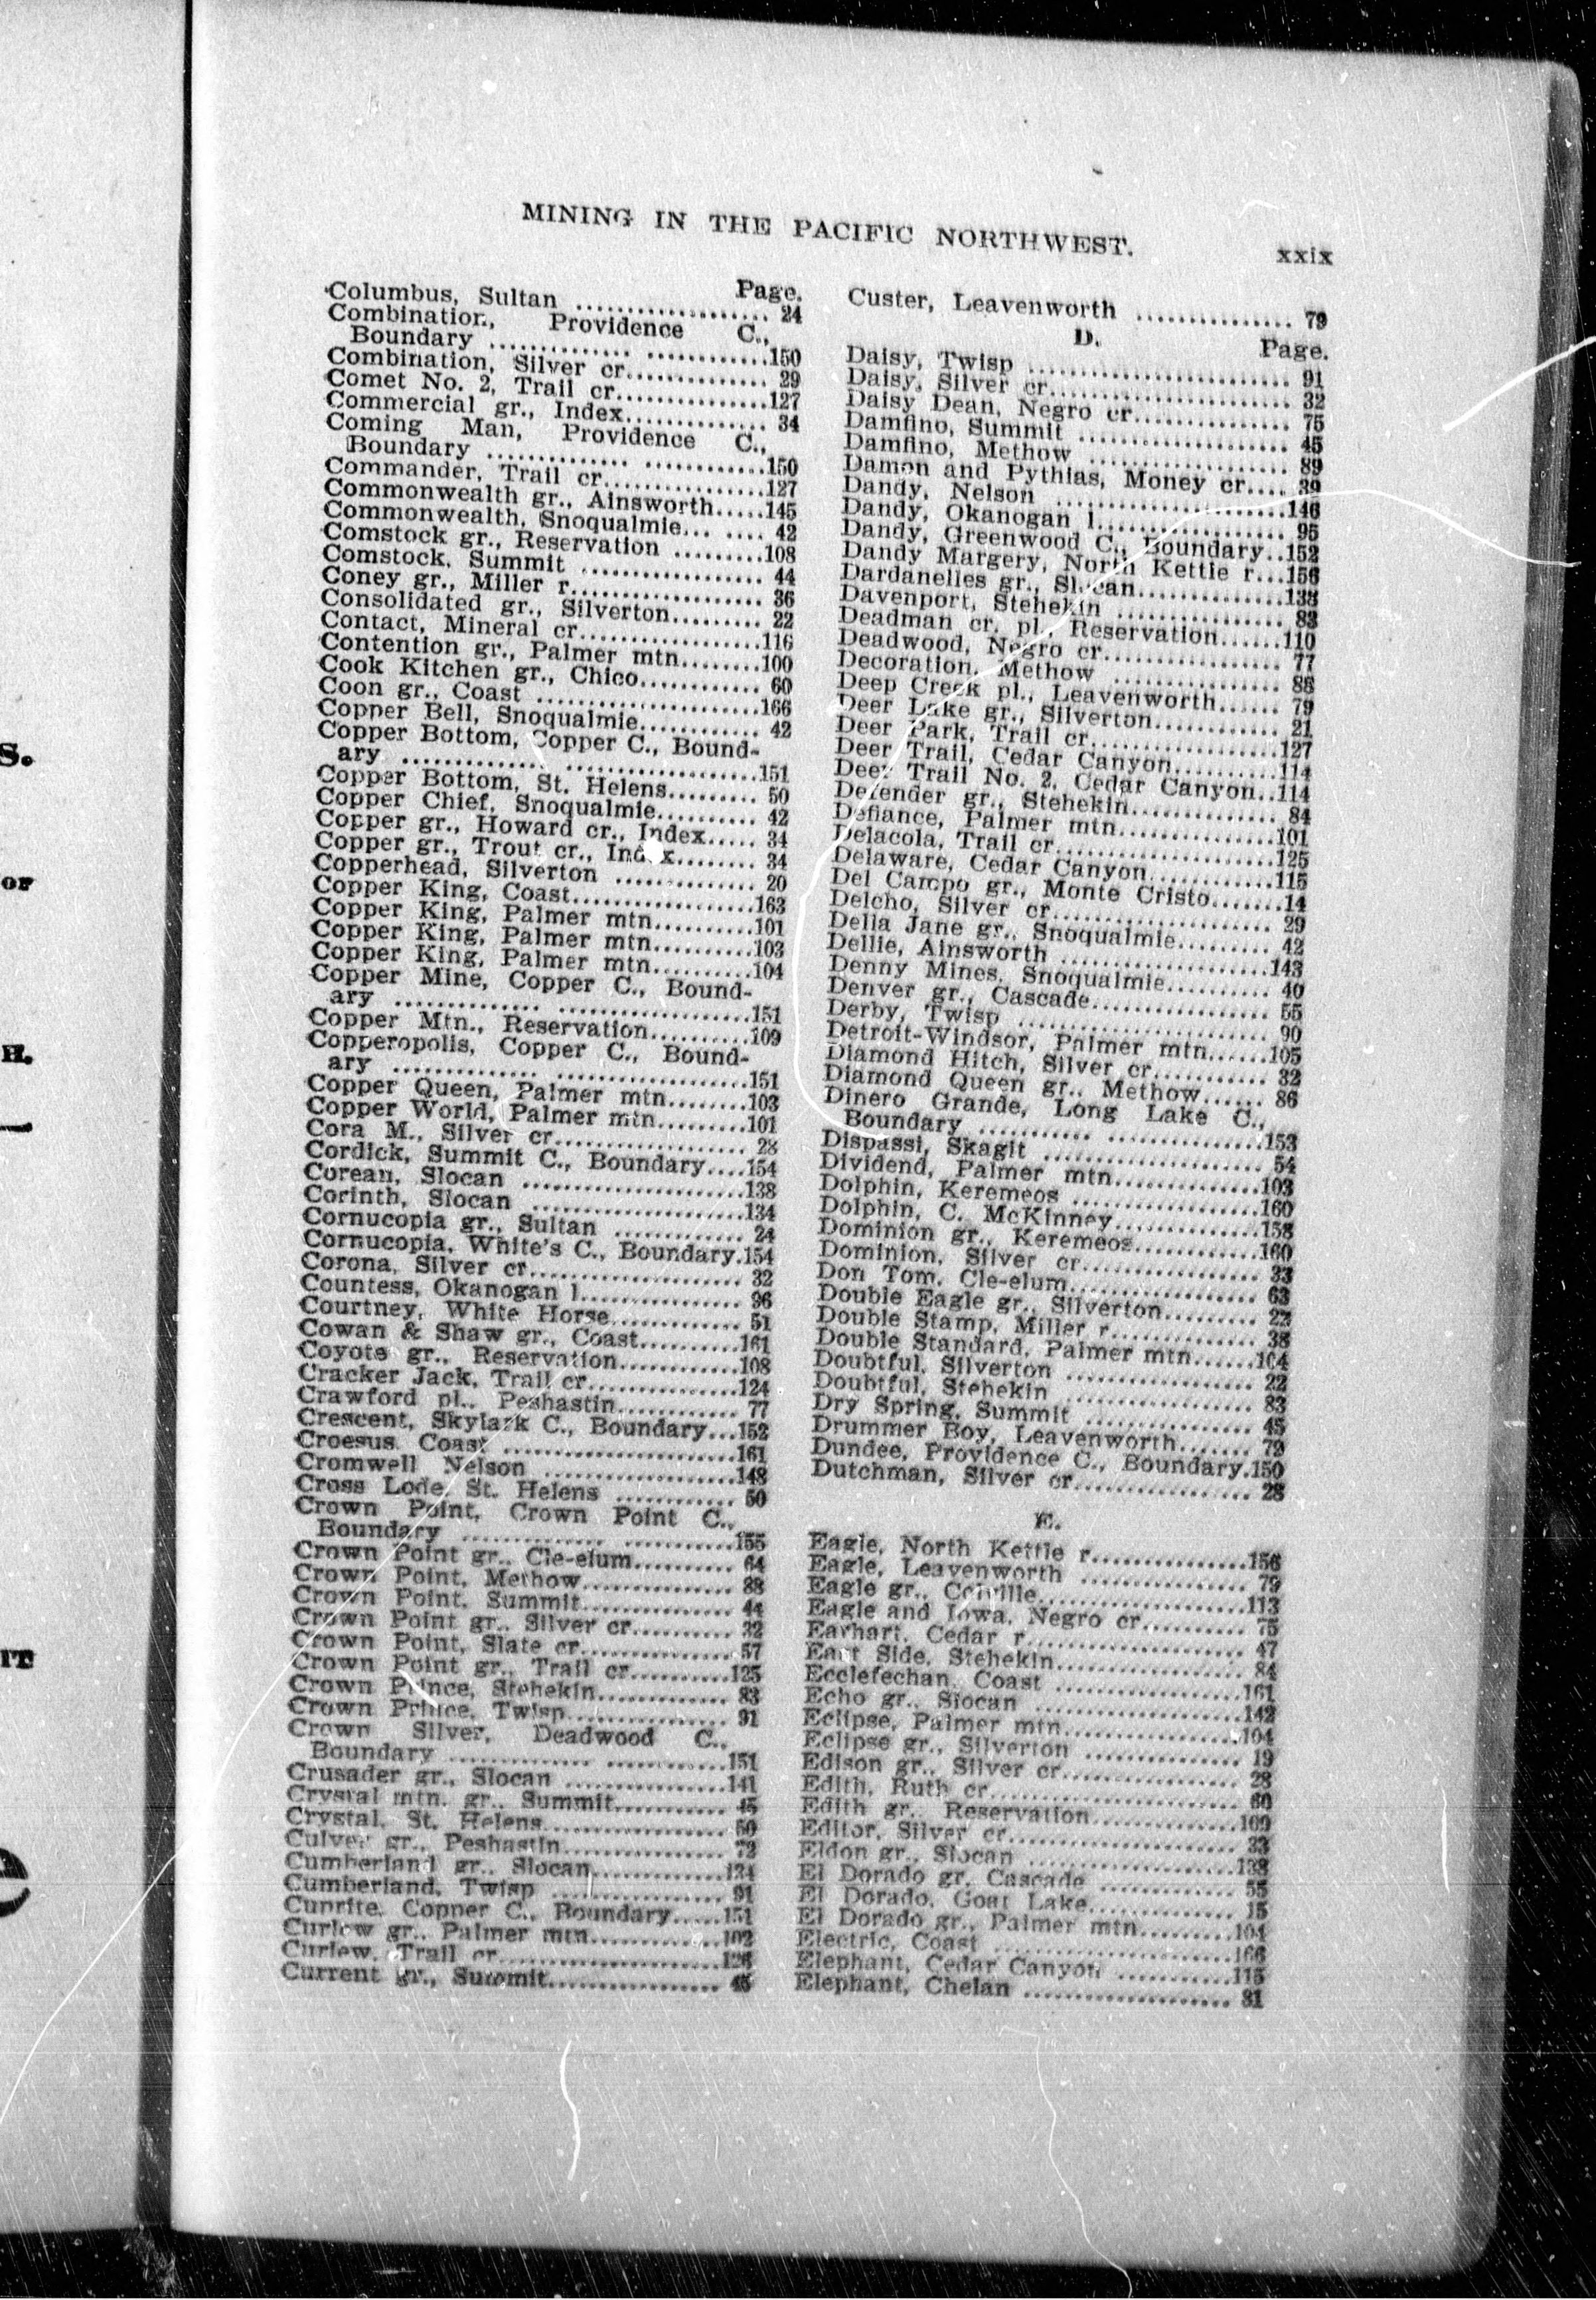 MINING IN THE PACIFIC NORTHWEST. xxix
Page.
Columbus, Sultan ................... 24
Combination, Providence C.,
Boundary .............. ............150
Combination, Silver cr.............. 29
Comet No. 2, Trail cr...............127
Commercial gr., Index.............. 34
Coming Man, Providence C.,
Boundary .............. ............150
Commander, Trail cr................127
Commonwealth gr., Ainsworth.....145
Commonwealth, Snoqualmie... .... 42
Comstock gr., Reservation .........108
Comstock, Summit .................. 44
Coney gr., Miller r................... 36
Consolidated gr., Silverton......... 22
Contact, Mineral cr..................116
Contention gr., Palmer mtn........100
Cook Kitchen gr., Chico............ 60
Coon gr., Coast ......................166
Copper Bell, Snoqualmie............ 42
Copper Bottom, Copper C., Bound-
ary .............. ...................151
Copper Bottom, St. Helens......... 50
Copper Chief, Snoqualmie.......... 42
Copper gr., Howard cr., Index..... 34
Copper gr., Trout cr., Index........ 34
Copperhead, Silverton .............. 20
Copper King, Coast..................163
Copper King, Palmer mtn..........101
Copper King, Palmer mtn..........103
Copper King, Palmer mtn..........104
Copper Mine, Copper C., Bound-
ary .............. ...................151
Copper Mtn., Reservation..........109
Copperopolis, Copper C., Bound-
ary .............. ...................151
Copper Queen, Palmer mtn........103
Copper World, Palmer mtn.........101
Cora M., Silver cr.................... 28
Cordick, Summit C., Boundary....154
Corean, Slocan ......................138
Corinth, Slocan .....................134
Cornucopia gr., Sultan ............. 24
Cornucopia, White's C., Boundary.154
Corona, Silver cr..................... 32
Countess, Okanogan l................ 96
Courtney, White Horse............. 51
Cowan & Shaw gr., Coast..........161
Coyote gr., Reservation............108
Cracker Jack, Trail cr..............124
Crawford pl., Peshastin............ 77
Crescent, Skylark C., Boundary...152
Croesus, Coast ......................161
Cromwell Nelson ...................148
Cross Lode, St. Helens ............ 50
Crown Point, Crown Point C.,
Boundary .............. ...........155
Crown Point gr., Cle-elum.......... 64
Crown Point, Methow............... 88
Crown Point, Summit............... 44
Crown Point gr., Silver cr.......... 32
Crown Point, Slate cr............... 57
Crown Point gr., Trail cr..........125
Crown Prince, Stehekin............. 83
Crown Prince, Twisp................ 91
Crown Silver, Deadwood C.,
Boundary .............. ............151
Crusader gr., Slocan ................141
Crystal mtn. gr., Summit........... 45
Crystal, St. Helens.................. 50
Culver gr., Peshastin................ 72
Cumberland gr., Slocan.............134
Cumberland, Twisp ................. 91
Cuprite, Copper C., Boundary.....151
Curlew gr., Palmer mtn.............102
Curlew, Trail cr......................126
Current gr., Summit................. 45
Custer, Leavenworth ............... 79
D.
Page.
Daisy, Twisp ......................... 91
Daisy, Silver cr....................... 32
Daisy Dean, Negro cr............... 75
Damfino, Summit ................... 45
Damfino, Methow ................... 89
Damon and Pythias, Money cr.... 39
Dandy, Nelson .......................146
Dandy, Okanogan l................. 95
Dandy, Greenwood C., Boundary..152
Dandy Margery, North Kettle r...156
Dardanelles gr., Slocan..............138
Davenport, Stehekin ................ 83
Deadman cr. pl., Reservation......110
Deadwood, Negro cr................. 77
Decoration, Methow ................ 88
Deep Creek pl., Leavenworth...... 79
Deer Lake gr., Silverton............ 21
Deer Park, Trail cr..................127
Deer Trail, Cedar Canyon..........114
Deer Trail No. 2, Cedar Canyon..114
Defender gr., Stehekin.............. 84
Defiance, Palmer mtn...............101
Delacola, Trail cr....................125
Delaware, Cedar Canyon............115
Del Campo gr., Monte Cristo....... 14
Delcho, Silver cr..................... 29
Della Jane gr., Snoqualmie......... 42
Dellie, Ainsworth ....................143
Denny Mines, Snoqualmie.......... 40
Denver gr., Cascade................. 55
Derby, Twisp ........................ 90
Detroit-Windsor, Palmer mtn......105
Diamond Hitch, Silver cr........... 32
Diamond Queen gr., Methow...... 86
Dinero Grande, Long Lake C.,
Boundary ........... ...............153
Dispassi, Skagit ..................... 54
Dividend, Palmer mtn..............103
Dolphin, Keremeos ..................160
Dolphin, C. McKinney..............158
Dominion gr., Keremeos............160
Dominion, Silver cr.................. 33
Don Tom, Cle-elum.................. 63
Double Eagle gr., Silverton......... 22
Double Stamp, Miller r.............. 38
Double Standard, Palmer mtn......104
Doubtful, Silverton .................. 22
Doubtful, Stehekin .................. 83
Dry Spring, Summit ................ 45
Drummer Boy, Leavenworth....... 79
Dundee, Providence C., Boundary.150
Dutchman, Silver cr................. 28
E.
Eagle, North Kettle r...............156
Eagle, Leavenworth ................ 79
Eagle gr., Colville....................113
Eagle and Iowa, Negro cr.......... 75
Earhart, Cedar r..................... 47
East Side, Stehekin.................. 84
Ecclefechan, Coast ..................161
Echo gr., Slocan .....................142
Eclipse, Palmer mtn.................104
Eclipse gr., Silverton ............... 19
Edison gr., Silver cr................. 28
Edith, Ruth cr........................ 60
Edith gr., Reservation..............109
Editor, Silver cr...................... 33
Eldon gr., Slocan ....................138
El Dorado gr. Cascade ............. 55
El Dorado, Goat Lake.............. 15
El Dorado gr., Palmer mtn.........104
Electric, Coast .......................166
Elephant, Cedar Canyon ...........115
Elephant, Chelan .................... 81
S.
or
H.
IT
e